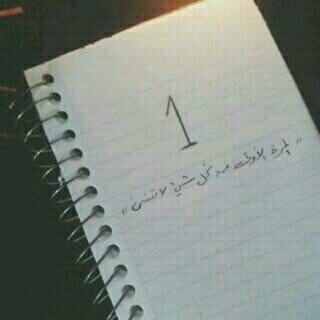 1
" المرة الأولى من كل شيء لا تنسى "